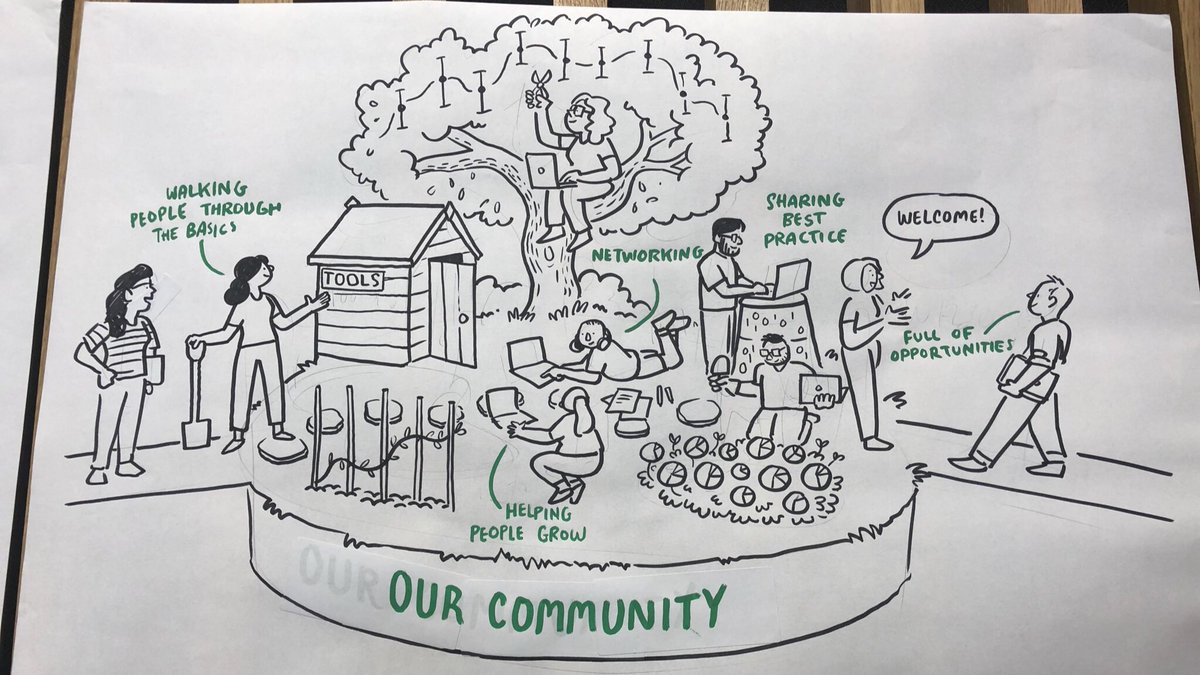 WALKING
PEOPLE THROUGH
THE BASICS
TOOLS
NETWORKING
SHARING
BEST
PRACTICE
WELCOME!
FULL OF
OPPORTUNITIES
HELPING
PEOPLE GROW
OUR COMMUNITY